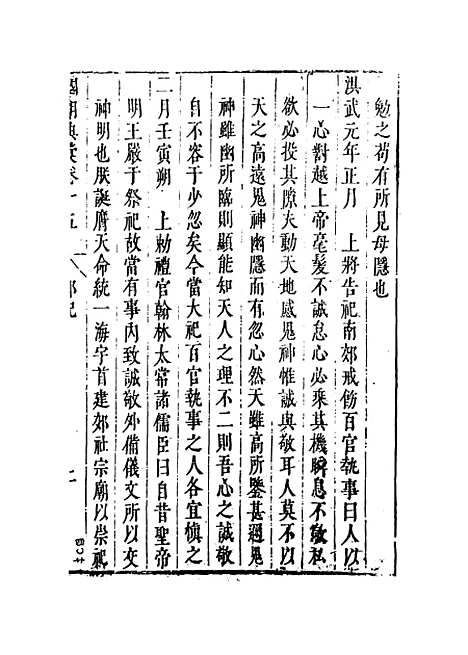 勉之苟有所見毋隱也
洪武元年正月　上將告祀南郊戒飭百官執事曰人以
一心對越上帝毫髮不誠怠心必乘其機瞬息不敬私
欲必投其隙夫動天地感鬼神惟誠與敬耳人莫不以
天之高遠鬼神幽隱而有忽心然天雖高所鑒甚邇鬼
神雖幽所臨則顯能知天人之理不二則吾心之誠敬
自不容于少忽矣今當大祀百官執事之人各宜慎之
二月壬寅朔　上勑禮官翰林太常諸儒臣曰自昔聖帝
明王嚴于祭祀故當有事內致誠敬外備儀文所以交
神明也朕誕膺天命統一海宇首建郊社宗廟以崇祀
國朝典彙卷十五　郊祀　二